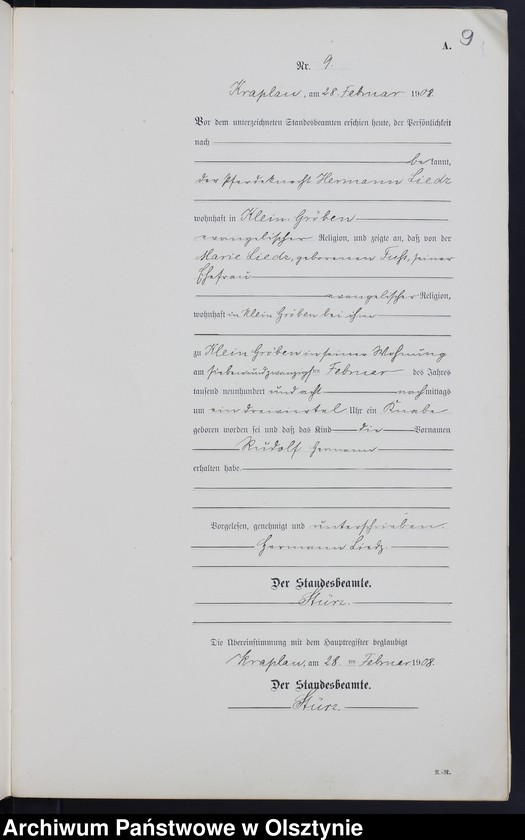 A. 9
Nr. 9.
Kraplau, am 28. Februar 1908.
Vor dem unterzeichneten Standesbeamten erschien heute, der Persönlichkeit
nach
bekannt,
der Pferdeknecht Hermann Liedz
wohnhaft in Klein Gröben
evangelischer Religion, und zeigte an, daß von der
Marie Liedz, geborenen Fuß, seiner
Ehefrau
evangelischer Religion,
wohnhaft in Klein Gröben bei ihm
zu Klein Gröben in seiner Wohnung
am siebenundzwanzigsten Februar des Jahres
tausend neunhundert und acht nachmittags
um ein dreiviertel Uhr ein Knabe
geboren worden sei und daß das Kind die Vornamen
Rudolf Hermann
erhalten habe.
Vorgelesen, genehmigt und unterschrieben.
Hermann Liedz.
Der Standesbeamte.
Stürz.
Die Übereinstimmung mit dem Hauptregister beglaubigt
Kraplau, am 28. ten Februar 1908.
Der Standesbeamte.
Stürz.
Archiwum Państwowe w Olsztynie